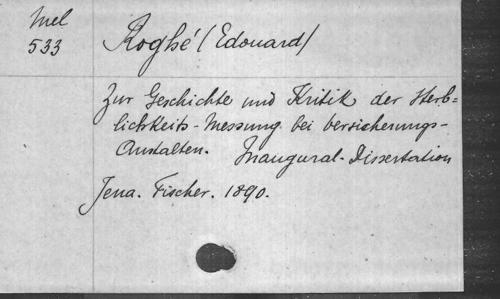 Mel
533
Roghé (Edouard)
Zur Geschichte und Kritik der Sterb=
lichkeits-Messung bei Versicherungs-
Anstalten. Inaugural-Dissertation
Jena. Fischer. 1890.